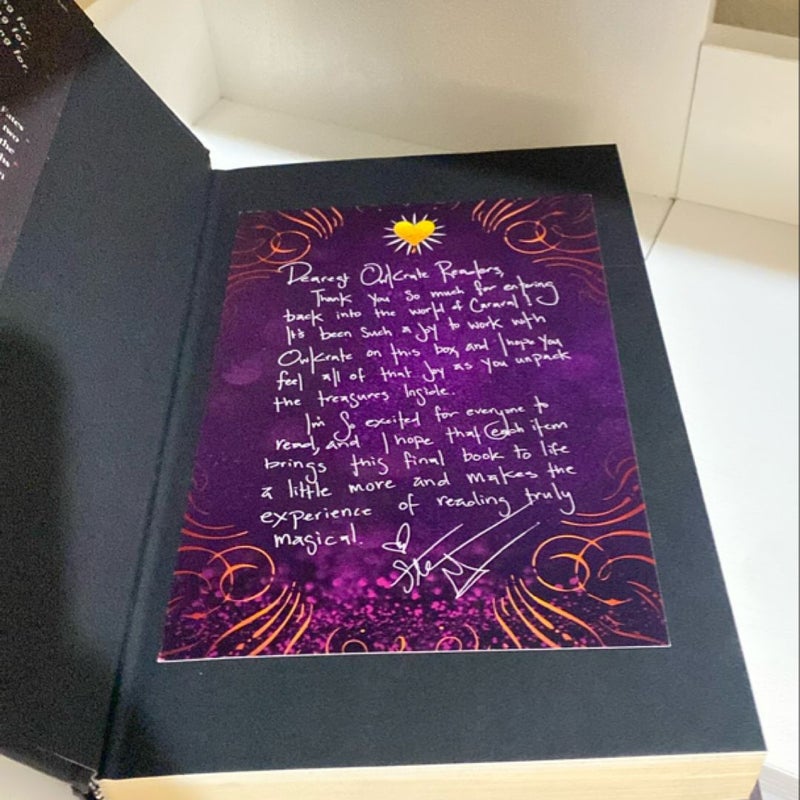 Dearest OwlCrate Readers,
Thank you so much for entering
back into the world of Caraval!
It's been such a joy to work with
OwlCrate on this box, and I hope you
feel all of that joy as you unpack
the treasures inside.
I'm so excited for everyone to
read, and I hope that each item
brings this final book to life
a little more and makes the
experience of reading truly
magical.
for.
for.
ng for.
two
the